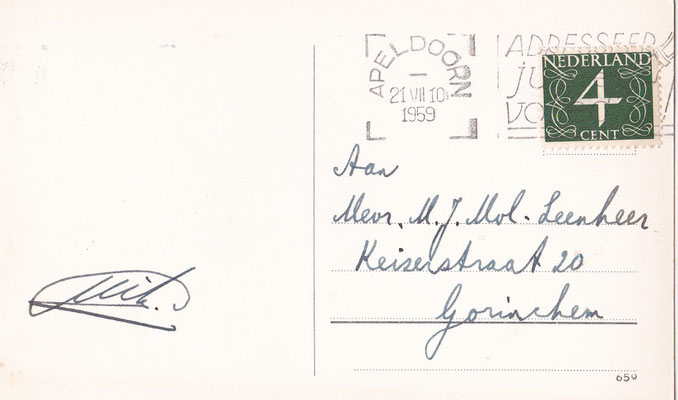 APELDOORN
21 VII 10
1959
ADRESSEER
JU
VO
NEDERLAND
4
CENT
Aan
Mevr. M. J. Mol-Leenheer
Keizerstraat 20
Gorinchem
659